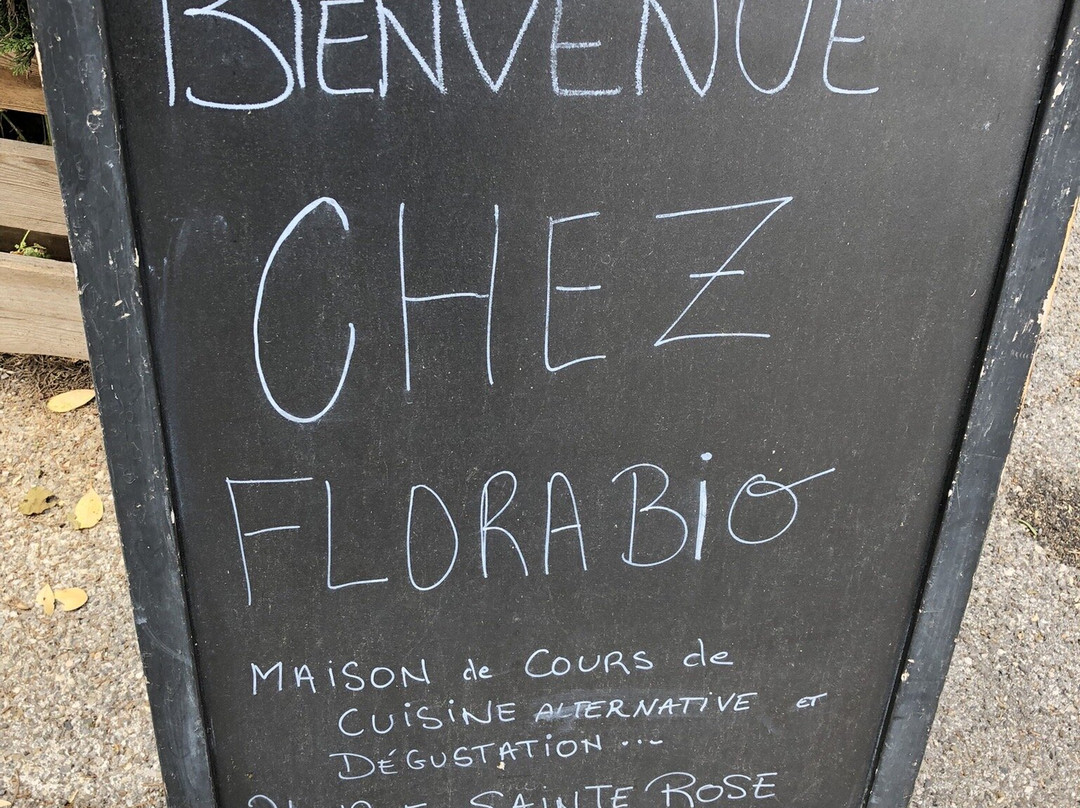 BIENVENUE
CHEZ
FLORABiO
MAiSON de COURS de
CUiSiNE ALTERNATiVE ET
DÉGUSTATiON ...
SAINTE ROSE